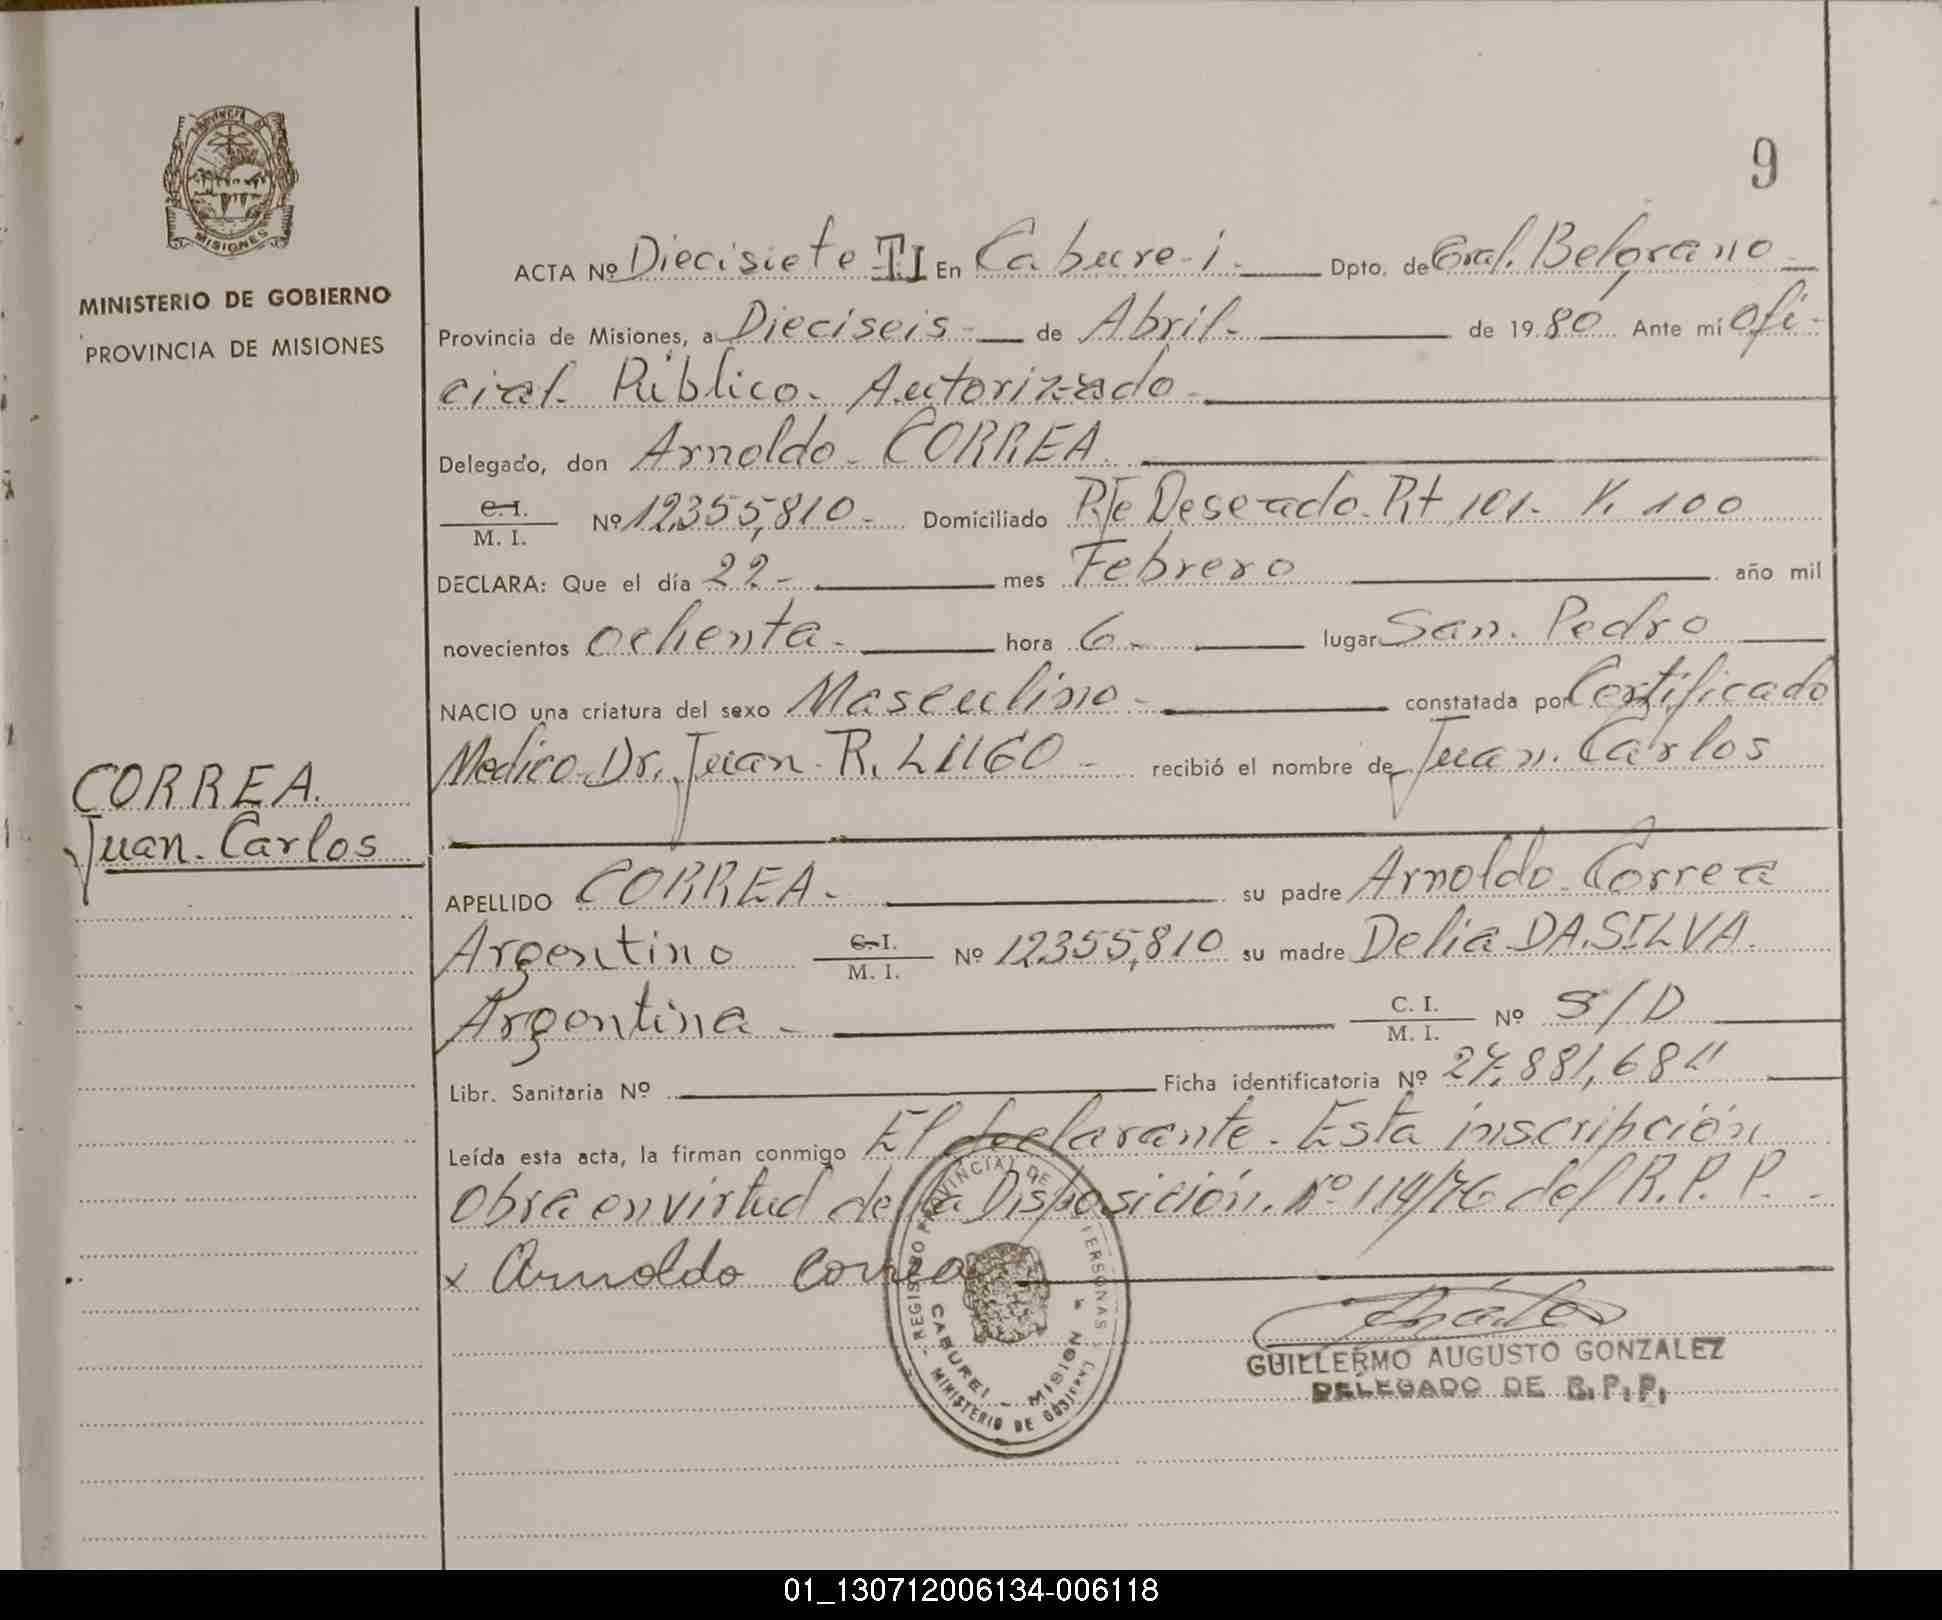 PROVINCIA DE
MISIONES
MINISTERIO DE GOBIERNO
PROVINCIA DE MISIONES
CORREA.
Juan. Carlos
9
ACTA Nº Diecisiete T.I En Cabure-i. Dpto. de Gral. Belgrano
Provincia de Misiones, a Dieciseis - de Abril - de 1980 Ante mí Ofi-
cial. Público. Autorizado -
Delegado, don Arnoldo - CORREA.
C. I.
M. I. Nº 12,355,810 - Domiciliado Pje Deseado. Rt 101. K. 100
DECLARA: Que el día 22 - mes Febrero año mil
novecientos ochenta - hora 6 - lugar San. Pedro
NACIO una criatura del sexo Masculino - constatada por Certificado
Medico. Dr. Juan. R. LUGO - recibió el nombre de Juan. Carlos
APELLIDO CORREA - su padre Arnoldo Correa
Argentino C. I.
M. I. Nº 12.355,810 su madre Delia DA.SILVA.
Argentina - C. I.
M. I. Nº S/D
Libr. Sanitaria Nº Ficha identificatoria Nº 27,881,684
Leída esta acta, la firman conmigo El declarante. Esta inscripción
Obra en virtud de la Disposición. Nº 114/76 del R. P. P. -
x Arnoldo Correa
REGISTRO PROVINCIAL DE PERSONAS
CABUREI - MISION
MINISTERIO DE GOBIERNO
GUILLERMO AUGUSTO GONZALEZ
DELEGADO DE R. P. P.
01_130712006134-006118